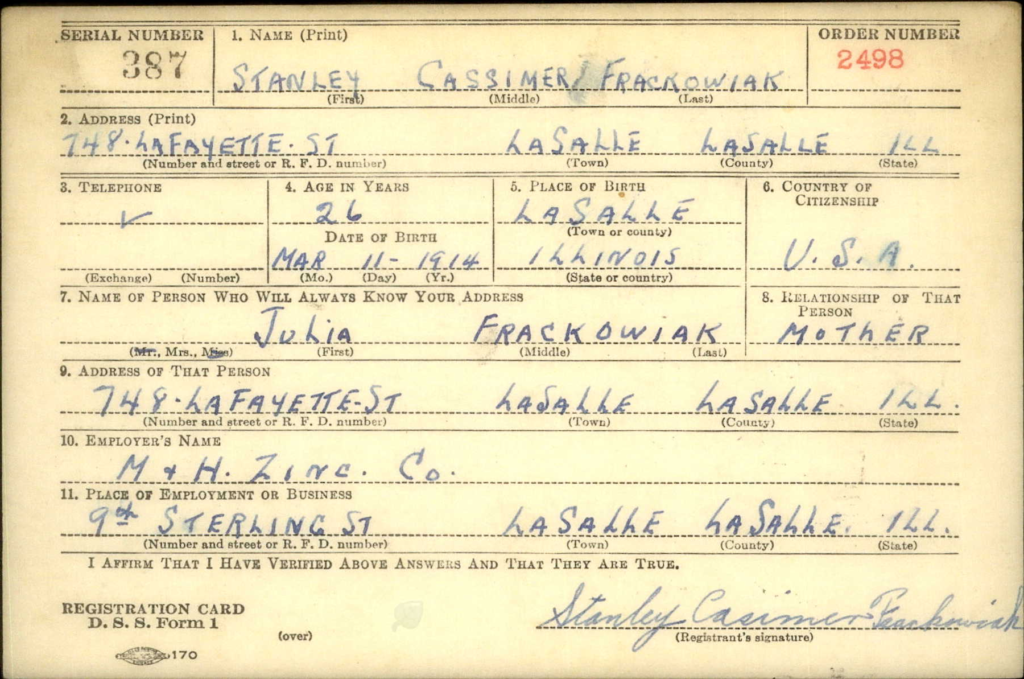 SERIAL NUMBER 1. NAME (Print) ORDER NUMBER
387 STANLEY CASSIMER FRACKOWIAK 2498
(First) (Middle) (Last)
2. ADDRESS (Print)
748. LAFAYETTE. ST LASALLE LASALLE ILL
(Number and street or R. F. D. number) (Town) (County) (State)
3. TELEPHONE 4. AGE IN YEARS 5. PLACE OF BIRTH 6. COUNTRY OF CITIZENSHIP
✓ 26 LASALLE
DATE OF BIRTH (Town or county)
MAR 11- 1914 ILLINOIS U. S. A.
(Exchange) (Number) (Mo.) (Day) (Yr.) (State or country)
7. NAME OF PERSON WHO WILL ALWAYS KNOW YOUR ADDRESS 8. RELATIONSHIP OF THAT PERSON
JULIA FRACKOWIAK MOTHER
(Mr., Mrs., Miss) (First) (Middle) (Last)
9. ADDRESS OF THAT PERSON
748. LAFAYETTE-ST LASALLE LASALLE. ILL.
(Number and street or R. F. D. number) (Town) (County) (State)
10. EMPLOYER'S NAME
M + H. ZINC. CO.
11. PLACE OF EMPLOYMENT OR BUSINESS
9th STERLING ST LASALLE LASALLE. ILL.
(Number and street or R. F. D. number) (Town) (County) (State)
I AFFIRM THAT I HAVE VERIFIED ABOVE ANSWERS AND THAT THEY ARE TRUE.
REGISTRATION CARD Stanley Casimer Frackowiak
D. S. S. Form 1 (over) (Registrant's signature)
170